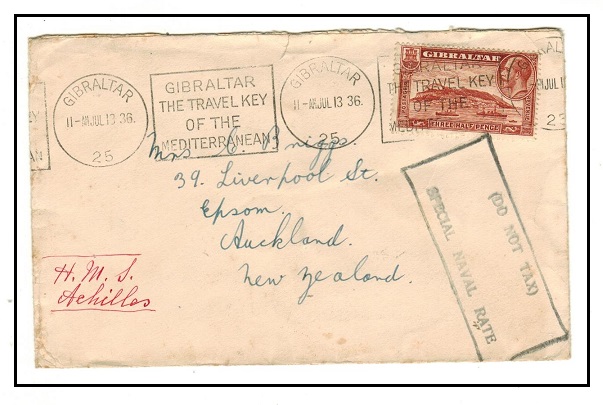 GIBRALTAR
11-AM JUL 13 36.
25
GIBRALTAR
THE TRAVEL KEY
OF THE
MEDITERRANEAN
GIBRALTAR
11-AM JUL 13 36.
25
GIBRALTAR
THREE HALF PENCE
GIBRALTAR
THE TRAVEL KEY
OF THE
MEDITERRANEAN
JUL 13
Mrs E. Briggs.
39. Liverpool St.
Epsom.
Auckland.
New Zealand.
H. M. S.
Achilles
(DO NOT TAX)
SPECIAL NAVAL RATE